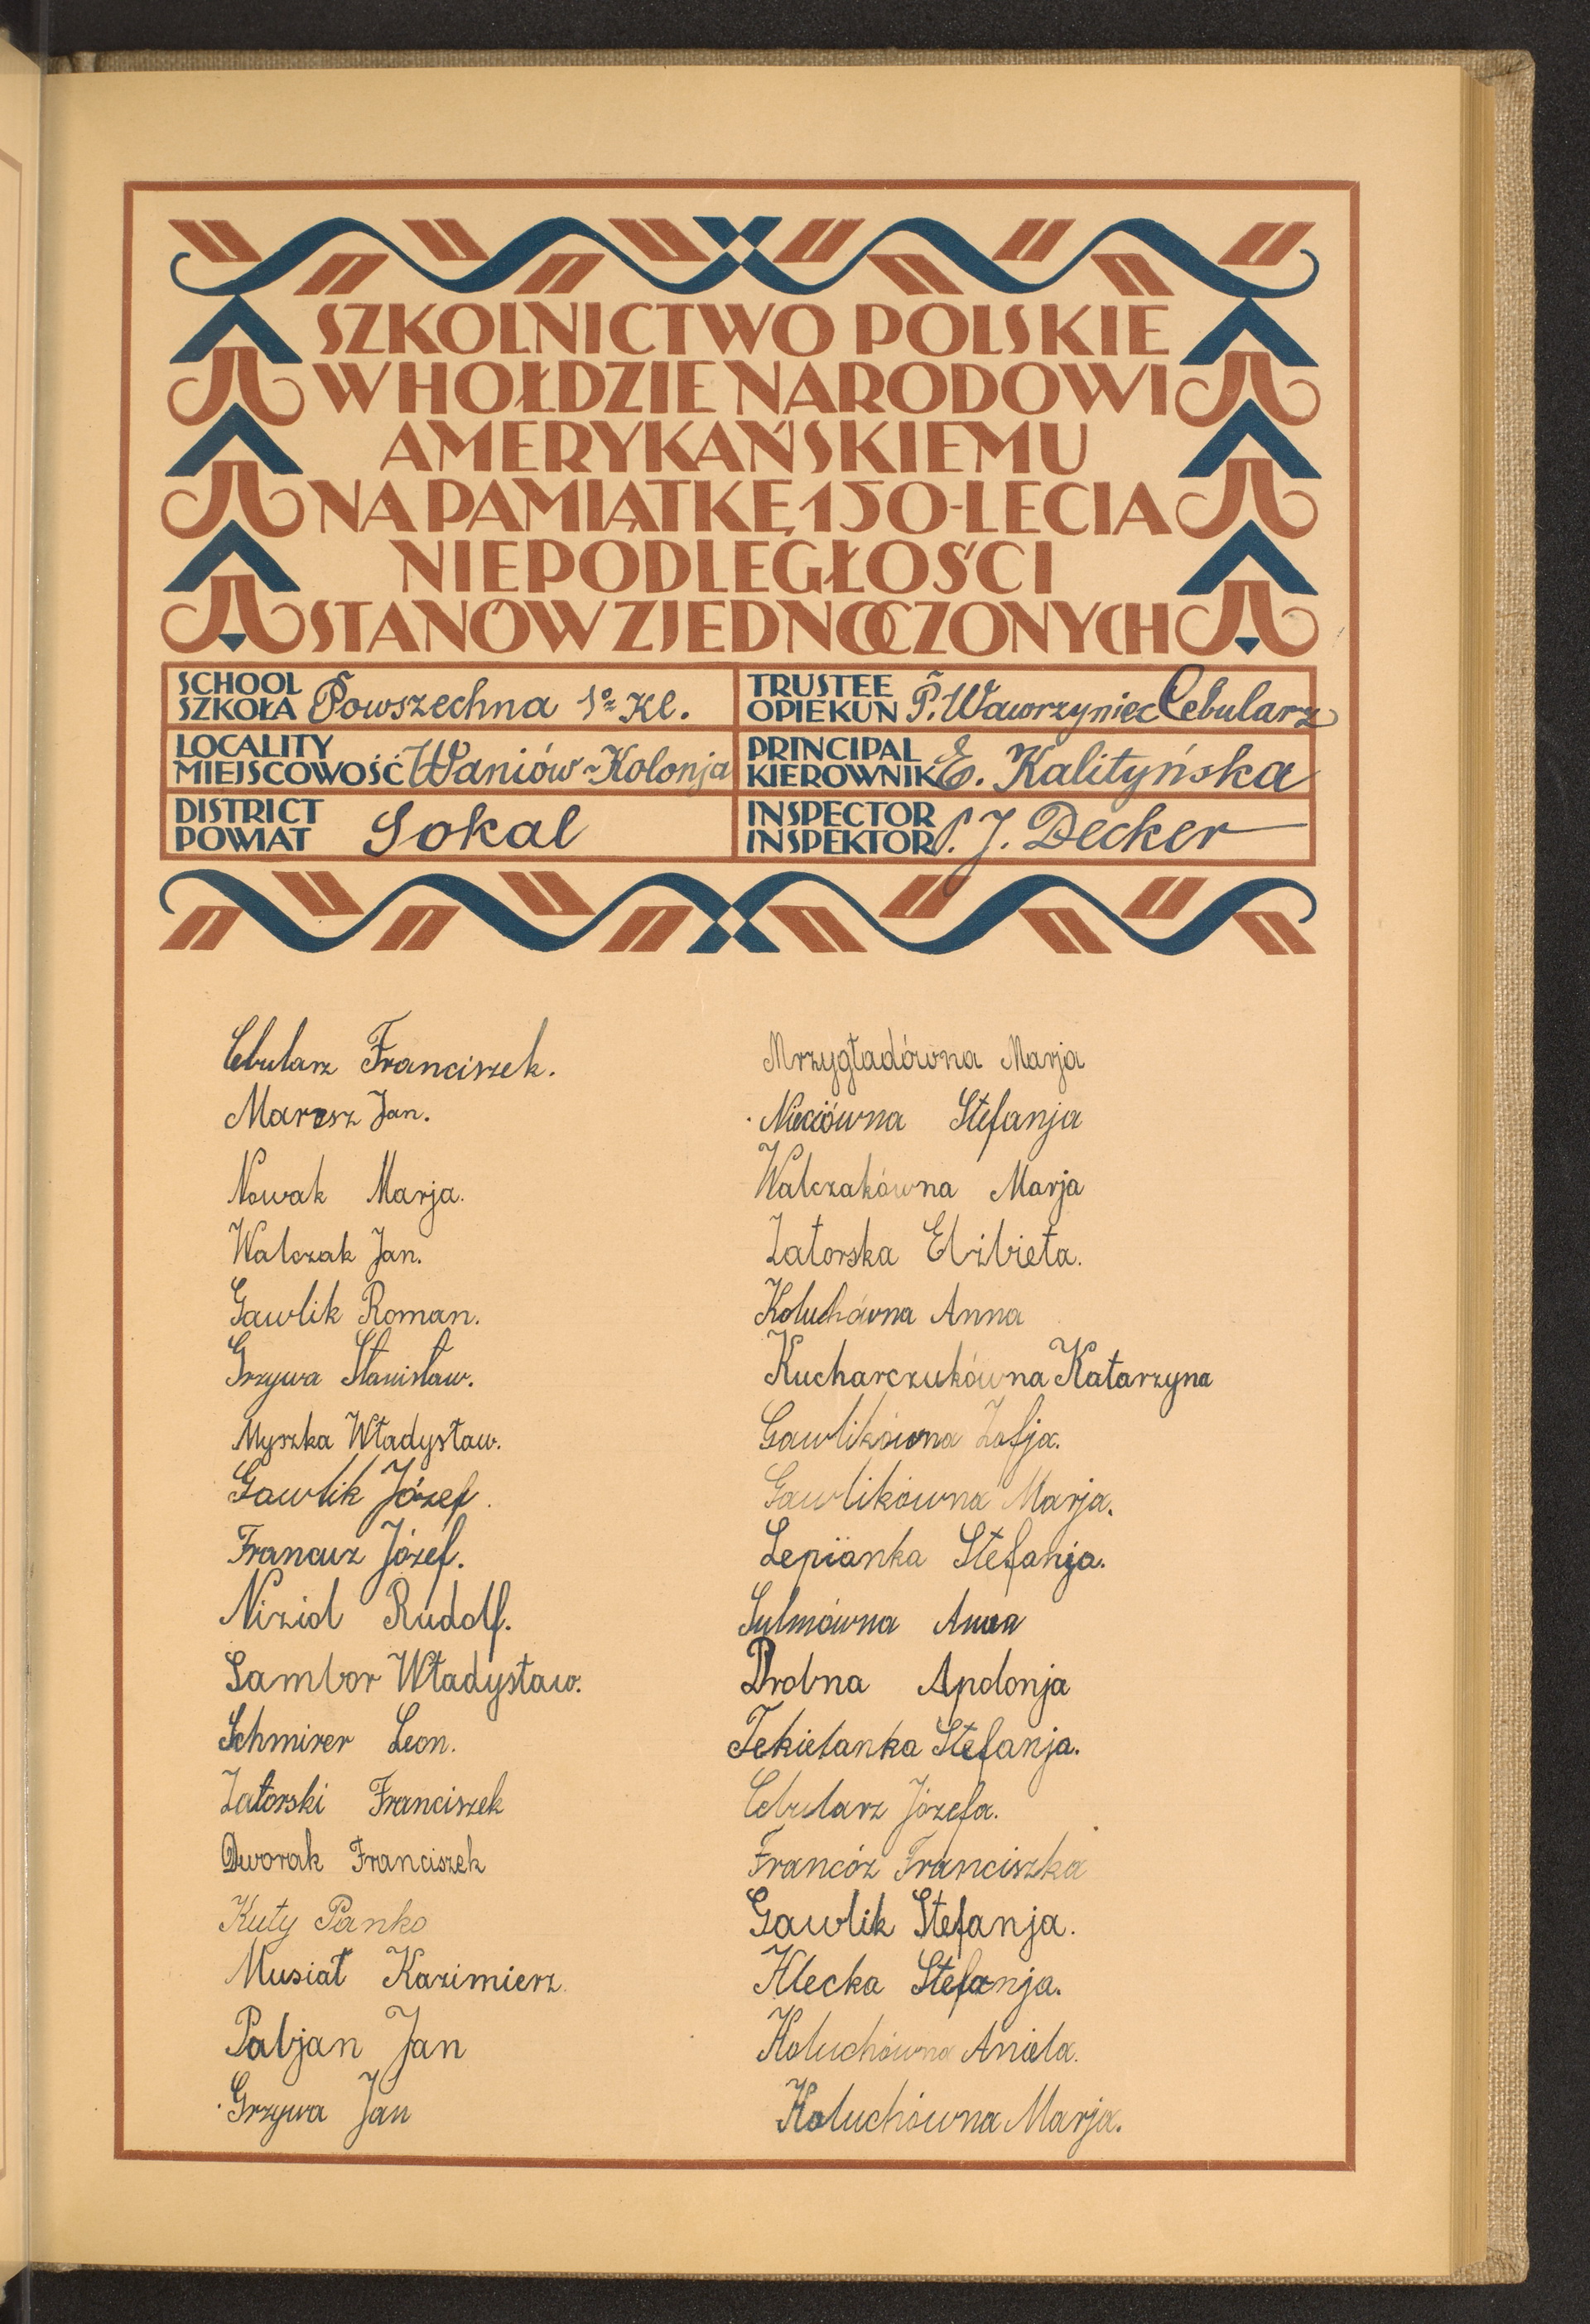 SZKOLNICTWO POLSKIE
W HOŁDZIE NARODOWI
AMERYKAŃSKIEMU
NA PAMIĄTKĘ 150-LECIA
NIEPODLEGŁOŚCI
STANÓW ZJEDNOCZONYCH
SCHOOL
SZKOŁA Powszechna 1º Kl.
LOCALITY
MIEJSCOWOŚĆ Waniów-Kolonja
DISTRICT
POWIAT Sokal
TRUSTEE
OPIEKUN P. Wawrzyniec Cebularz
PRINCIPAL
KIEROWNIK E. Kalityńska
INSPECTOR
INSPEKTOR P. J. Decker
Cebularz Franciszek.
Marosz Jan.
Nowak Marja.
Walczak Jan.
Gawlik Roman.
Grzywa Stanisław.
Myszka Władysław.
Gawlik Józef.
Francuz Józef.
Nizioł Rudolf.
Sambor Władysław.
Schmirer Leon.
Zatorski Franciszek
Dworak Franciszek
Kuty Panko
Musiał Kazimierz.
Pabjan Jan
Grzywa Jan
Mrzygładówna Marja
Nieciówna Stefanja
Walczakówna Marja
Zatorska Elżbieta.
Koluchówna Anna
Kucharczukówna Katarzyna
Gawlikówna Zofja.
Gawlikówna Marja.
Lepianka Stefanja.
Sulmówna Anna
Drobna Apolonja
Tekielanka Stefanja.
Cebularz Józefa.
Francóz Franciszka
Gawlik Stefanja.
Klecka Stefanja.
Koluchówna Aniela.
Koluchówna Marja.